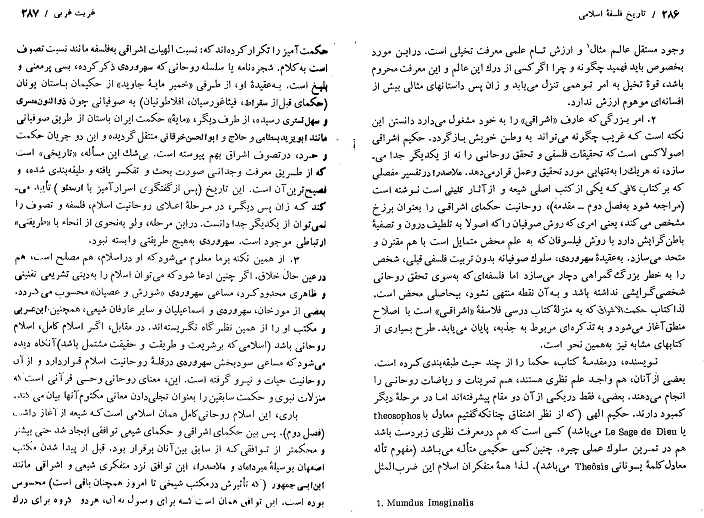 ۲۸۶ / تاریخ فلسفهٔ اسلامی
وجود مستقل عالم مثال¹ و ارزش تام علمی معرفت تخیلی است. در این مورد
بخصوص باید فهمید چگونه و چرا اگر کسی از درك این عالم و این معرفت محروم
باشد، قوهٔ تخیل به امر توهمی تنزل می‌یابد و زان پس داستانهای مثالی بیش از
افسانه‌ای موهوم ارزش ندارد.
۲. امر بزرگی که عارف «اشراقی» را به خود مشغول می‌دارد دانستن این
نکته است که غریب چگونه می‌تواند به وطن خویش بازگردد. حکیم اشراقی
اصولاکسی است که تحقیقات فلسفی و تحقق روحانی را نه از یکدیگر جدا می-
سازد، نه هریك را به تنهایی مورد تحقیق و عمل قرار می‌دهد. ملاصدرا در تفسیر مفصلی
که بر کتاب کافی که یکی از کتب اصلی شیعه و از آثار کلینی است نوشته است
(مراجعه شود به فصل دوم ــ مقدمه)، روحانیت حکمای اشراقی را بعنوان برزخ
مشخص می‌کند، یعنی امری که روش صوفیان را که اصولا به تلطیف درون و تصفیهٔ
باطن گرایش دارد با روش فیلسوفان که به علم محض متمایل است با هم مقترن و
متحد می‌سازد. به عقیدهٔ سهروردی، سلوك صوفیانه بدون تربیت فلسفی قبلی، شخص
را به خطر بزرگ گمراهی دچار می‌سازد اما فلسفه‌ای که به سوی تحقق روحانی
شخصی گرایشی نداشته باشد و به آن نقطه منتهی نشود، بیحاصلی محض است.
لذا کتاب حکمت‌الاشراق که به منزلهٔ کتاب درسی فلاسفهٔ «اشراقی» است با اصلاح
منطق آغاز می‌شود و به تذکره‌ای مربوط به جذبه، پایان می‌یابد. طرح بسیاری از
کتابهای مشابه نیز به همین نحو است.
نویسنده، در مقدمهٔ کتاب، حکما را از چند حیث طبقه‌بندی کرده است.
بعضی از آنان، هم واجد علم نظری هستند، هم تمرینات و ریاضات روحانی را
انجام می‌دهند. بعضی، فقط در یکی از آن دو مقام پیشرفته‌اند اما در مرحلهٔ دیگر
کمبود دارند. حکیم الهی (که از نظر اشتقاق چنانکه گفتیم معادل با theosophos
یا Le Sage de Dieu می‌باشد) کسی است که هم در معرفت نظری زبردست باشد
هم در تمرین سلوك عملی چیره. چنین کسی حکیمی متأله می‌باشد (مفهوم تأله
معادل کلمهٔ یونانی Theôsis می‌باشد). لذا همهٔ متفکران اسلام این ضرب‌المثل
1. Mumdus Imaginalis
غربت غربی / ۲۸۷
حکمت‌آمیز را تکرار کرده‌اند که: نسبت الهیات اشراقی به فلسفه مانند نسبت تصوف
است به کلام. شجره‌نامه یا سلسلهٔ روحانی که سهروردی ذکر کرده، بسی پرمعنی و
بلیغ است. به عقیدهٔ او، از طرفی «خمیر مایهٔ جاوید» از حکیمان باستان یونان
(حکمای قبل از سقراط، فیثاغورسیان، افلاطونیان) به صوفیانی چون ذوالنون مصری
و سهل تستری رسیده، از طرف دیگر، «مایهٔ» حکمت ایران باستان از طریق صوفیانی
مانند ابویزید بسطامی و حلاج و ابوالحسن خرقانی منتقل گردیده و این دو جریان حکمت
و خرد، در تصوف اشراق بهم پیوسته است. بی‌شك این مسأله، «تاریخی» است
که از طریق معرفت وجدانی صورت بحث و تفکر یافته و طبقه‌بندی شده، و
فصیح‌ترین آن است. این تاریخ (پس از گفتگوی اسرارآمیز با ارسطو) تأیید می-
کند که زان پس دیگر، در مرحلهٔ اعلای روحانیت اسلام، فلسفه و تصوف را
نمی‌توان از یکدیگر جدا دانست. در این مرحله، ولو به نحوی از انحاء با «طریقتی»
ارتباطی موجود است. سهروردی به هیچ طریقتی وابسته نبود.
۳. از همین نکته برما معلوم می‌شود که او در اسلام، هم مصلح است، هم
در عین حال خلاق. اگر چنین ادعا شود که می‌توان اسلام را به دینی تشریعی تقنینی
و ظاهری محدود کرد، مساعی سهروردی «شورش و عصیان» محسوب می‌گردد.
بعضی از مورخان، سهروردی و اسماعیلیان و سایر عارفان شیعی، همچنین ابن‌عربی
و مکتب او را از همین نظرگاه نگریسته‌اند. در مقابل، اگر اسلام کامل، اسلام
روحانی باشد (اسلامی که برشریعت و طریقت و حقیقت مشتمل باشد) آنگاه دیده
می‌شود که مساعی سودبخش سهروردی در قلهٔ روحانیت اسلام قرار دارد و از آن
روحانیت حیات و نیرو گرفته است. این، معنای روحانی وحی قرآنی است که
منزلات نبوی و حکمت سابقین را بعنوان تجلی‌دادن معانی مکتوم آنها بیان می‌کند.
باری، این اسلام روحانی کامل همان اسلامی است که شیعه از آغاز داشت
(فصل دوم). پس بین حکمای اشراقی و حکمای شیعی توافقی ایجاد شد حتی بیشتر
و محکمتر از توافقی که از سابق بین آنان برقرار بود. قبل از پیدا شدن مکتب
اصفهان بوسیلهٔ میرداماد و ملاصدرا، این توافق نزد متفکری شیعی و اشراقی مانند
ابن‌ابی‌جمهور (که تأثیرش در مکتب شیخی تا امروز همچنان باقی است) محسوس
بوده است. این توافق همان است که برای وصول به آن، هر دو گروه برای درك